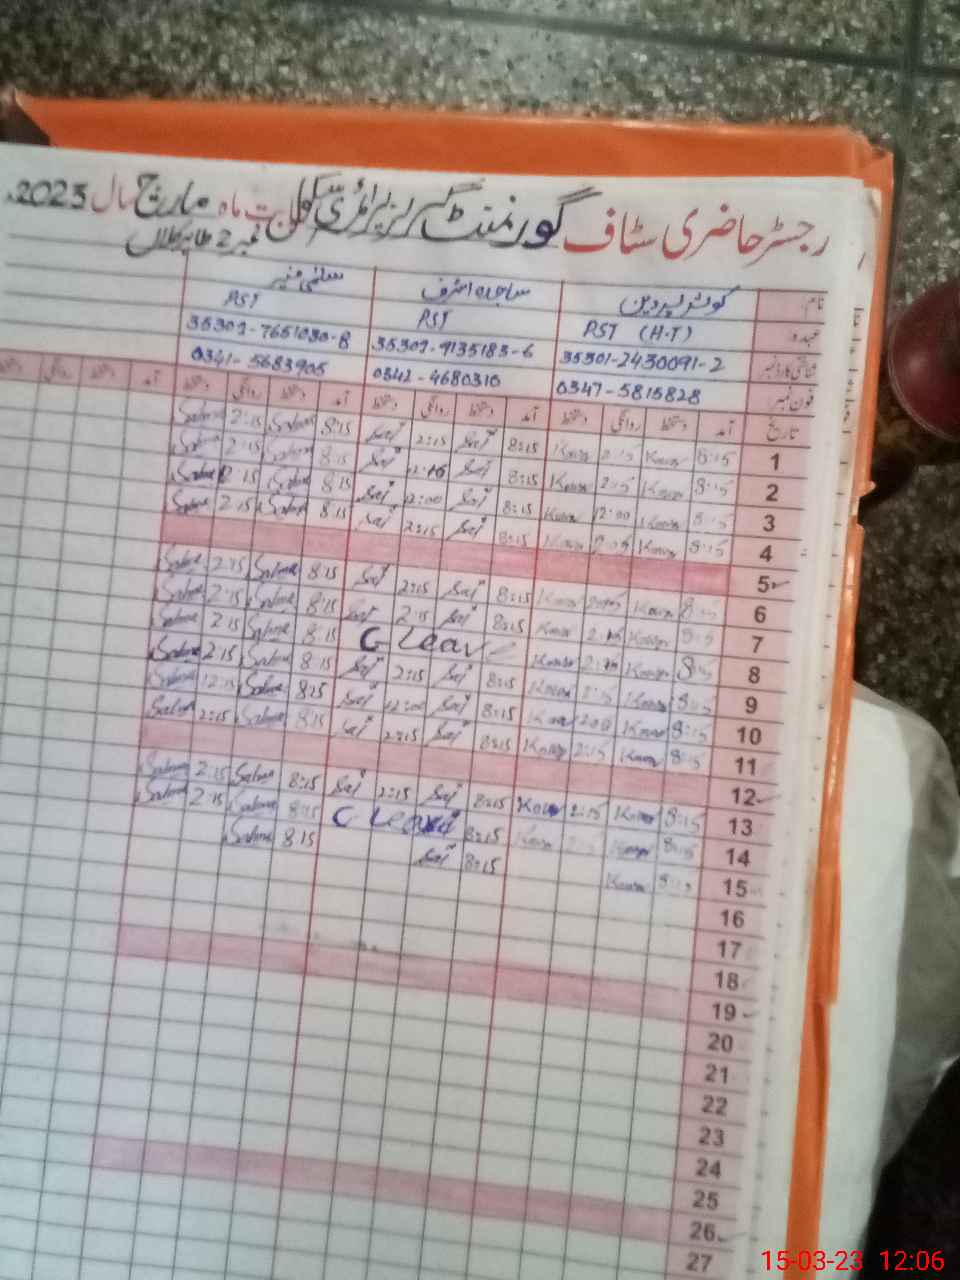 رجسٹر حاضری سٹاف گورنمنٹ گرلز پرائمری سکول بابت ماہ مارچ سال 2023
نمبر 2
نام کوثر پروین ساجدہ اشرف سلمیٰ منیر
عہدہ PST (H.T) PST PST
شناختی کارڈ نمبر 35301-2430091-2 35301-9135183-6 35301-7651030-8
فون نمبر 0347-5815828 0342-4680310 0341-5683905
تاریخ آمد دستخط روانگی دستخط آمد دستخط روانگی دستخط آمد دستخط روانگی دستخط آمد
1 8:15 Kousr 2:15 Kousr 8:15 Saj 2:15 Saj 8:15 Salma 2:15 Salma
2 8:15 Kousr 2:15 Kousr 8:15 Saj 2:15 Saj 8:15 Salma 2:15 Salma
3 8:15 Kousr 12:00 Kousr 8:15 Saj 12:00 Saj 8:15 Salma 12:15 Salma
4 8:15 Kousr 2:15 Kousr 8:15 Saj 2:15 Saj 8:15 Salma 2:15 Salma
5
6 8:15 Kousr 2:15 Kousr 8:15 Saj 2:15 Saj 8:15 Salma 2:15 Salma
7 8:15 Kousr 2:15 Kousr 8:15 Saj 2:15 Saj 8:15 Salma 2:15 Salma
8 8:15 Kousr 2:15 Kousr C Leave 8:15 Salma 2:15 Salma
9 8:15 Kousr 2:15 Kousr 8:15 Saj 2:15 Saj 8:15 Salma 2:15 Salma
10 8:15 Kousr 12:00 Kousr 8:15 Saj 12:00 Saj 8:15 Salma 12:15 Salma
11 8:15 Kousr 2:15 Kousr 8:15 Saj 2:15 Saj 8:15 Salma 2:15 Salma
12
13 8:15 Kousr 2:15 Kousr 8:15 Saj 2:15 Saj 8:15 Salma 2:15 Salma
14 8:15 Kousr 2:15 Kousr 8:15 C Leave 8:15 Salma 2:15 Salma
15 8:15 Kousr 8:15 Saj 8:15 Salma
16
17
18
19
20
21
22
23
24
25
26
27
15-03-23 12:06